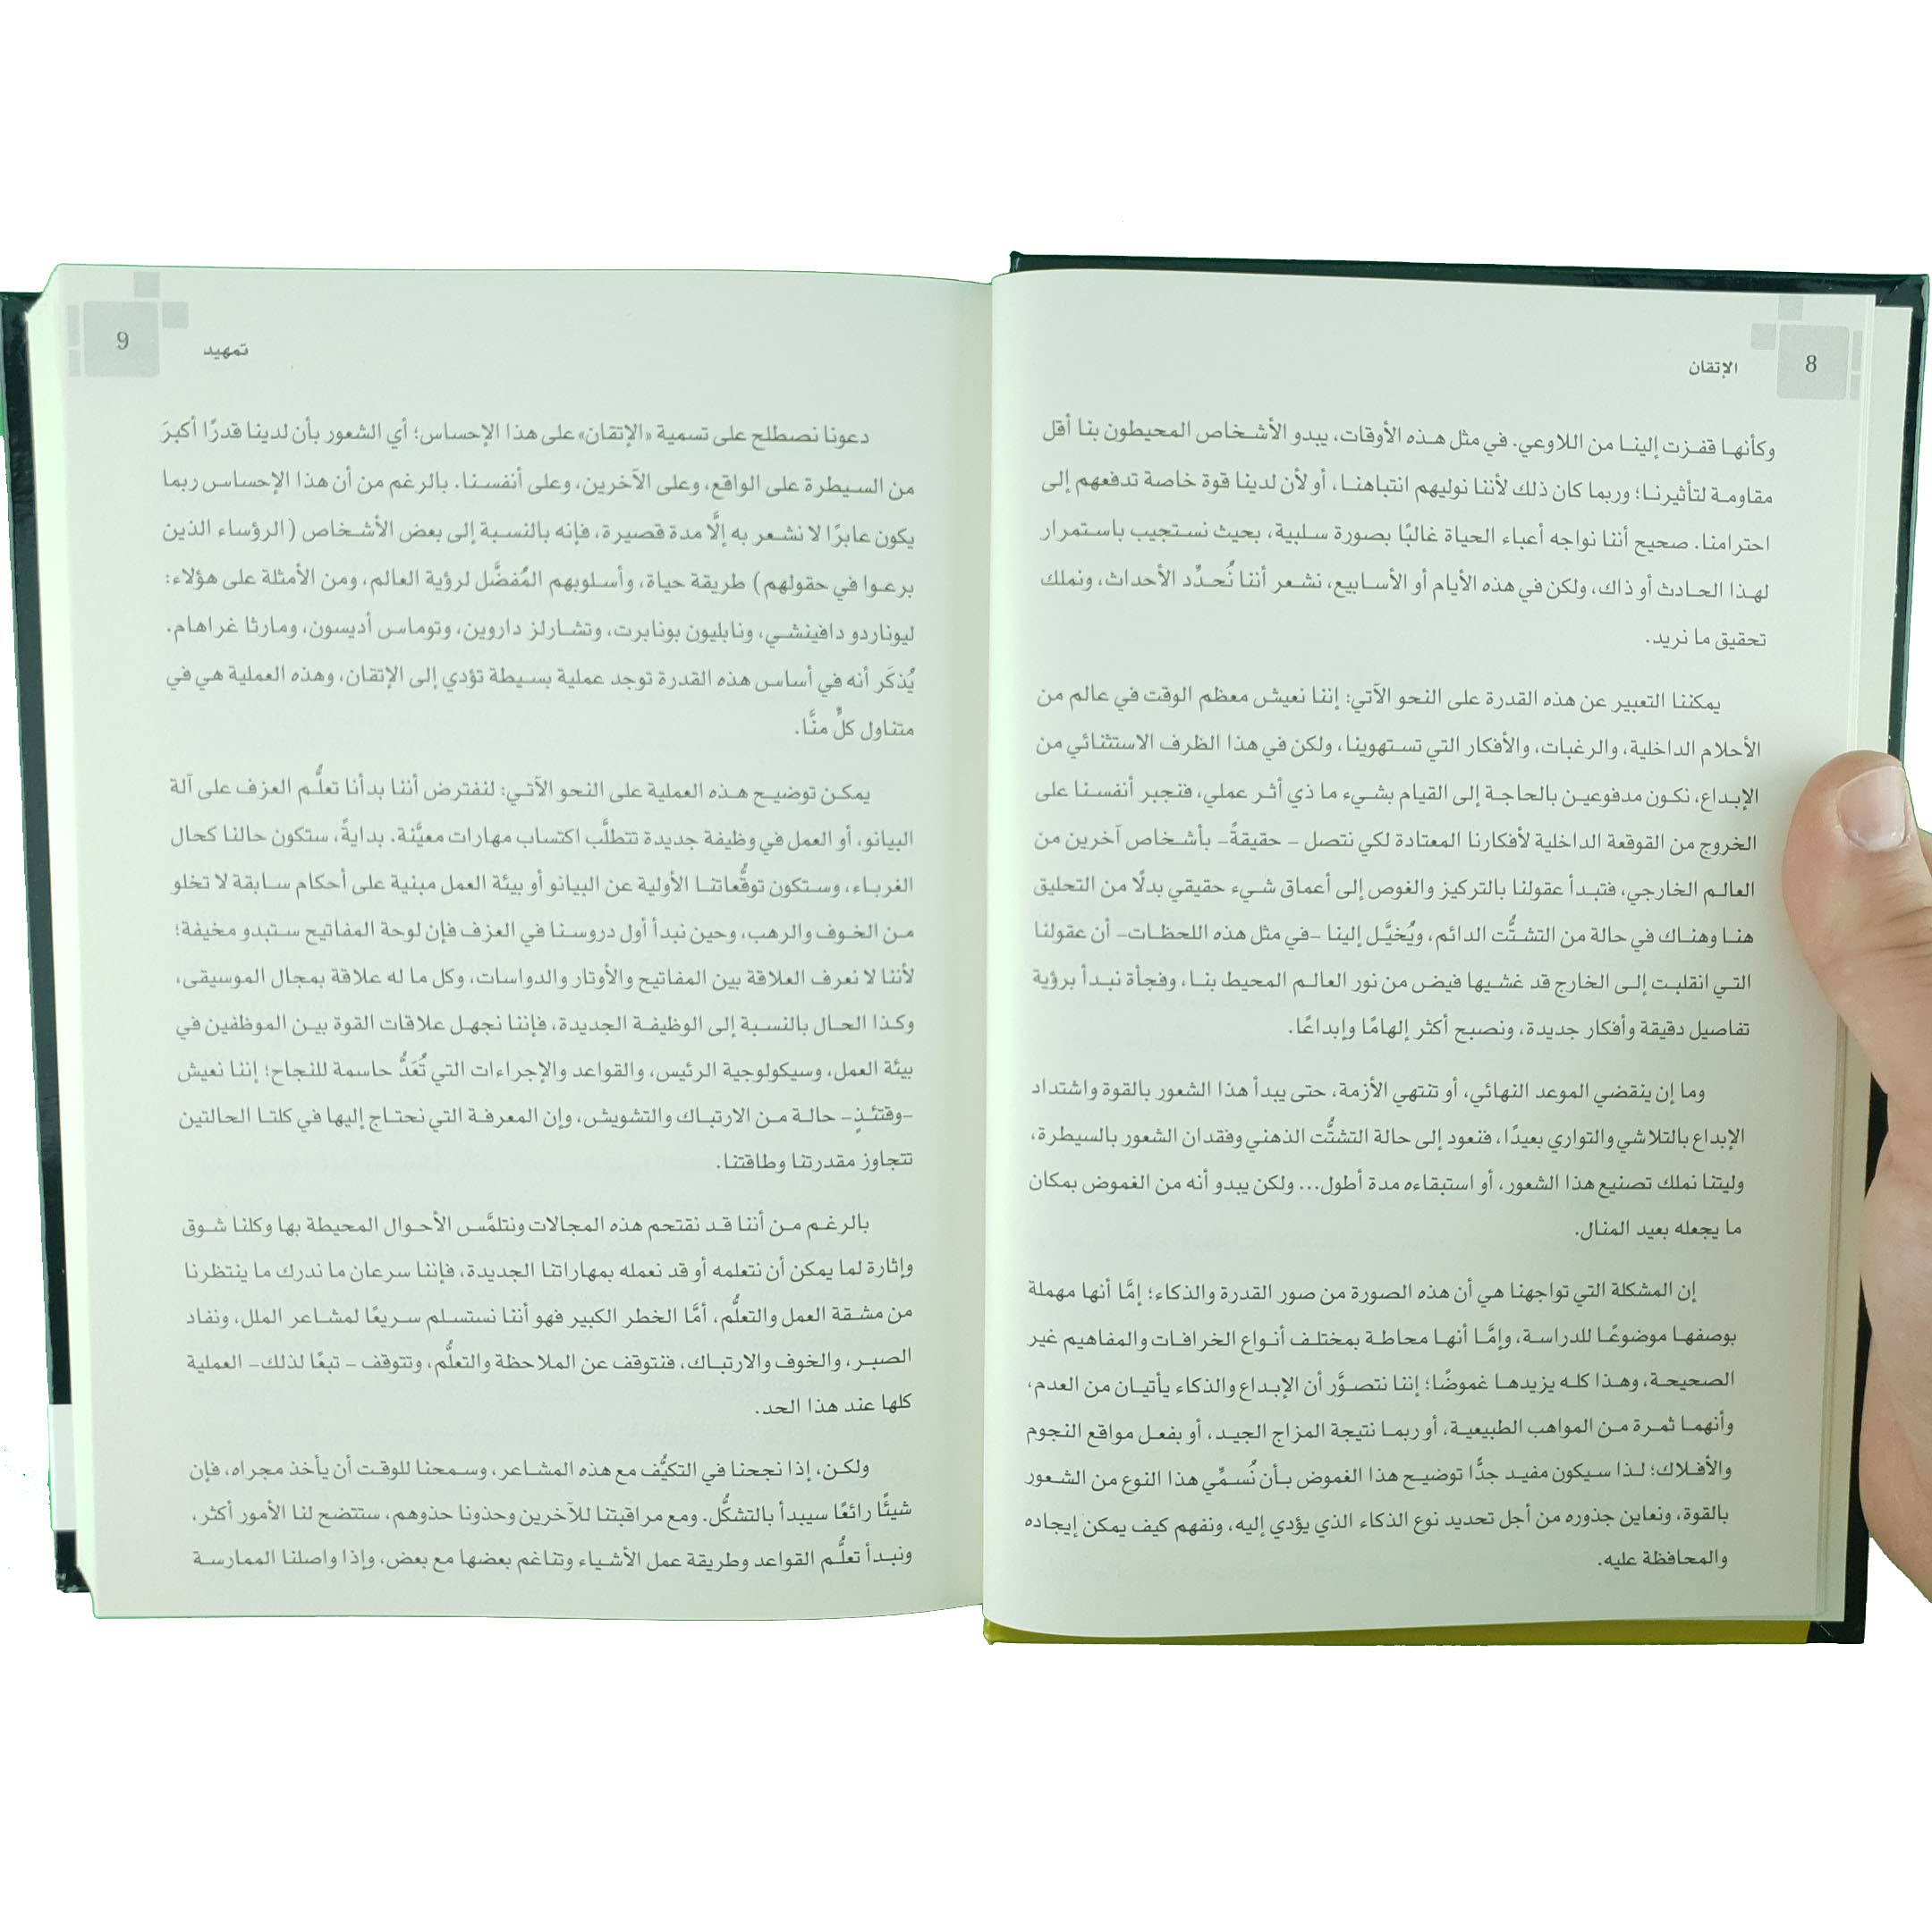 8
الإتقان
وكأنهـا قفـزت إلينـا من اللاوعي. في مثل هـذه الأوقات، يبدو الأشـخاص المحيطون بنا أقل
مقاومـة لتأثيرنـا؛ وربمـا كان ذلك لأننا نوليهم انتباهنـا، أو لأن لدينا قوة خاصة تدفعهم إلى
احترامنا. صحيح أننا نواجه أعباء الحياة غالبًا بصورة سـلبية، بحيث نسـتجيب باسـتمرار
لهـذا الحـادث أو ذاك، ولكن في هذه الأيام أو الأسـابيع، نشـعر أننا نُحـدِّد الأحداث، ونملك
تحقيق ما نريد.
يمكننا التعبير عن هذه القدرة على النحو الآتي: إننا نعيش معظم الوقت في عالم من
الأحلام الداخلية، والرغبات، والأفكار التي تسـتهوينا، ولكن في هـذا الظرف الاستثنائي من
الإبـداع، نكـون مدفوعيـن بالحاجـة إلى القيام بشـيء ما ذي أثـر عملي، فنجبر أنفسـنا على
الخروج من القوقعة الداخلية لأفكارنا المعتادة لكي نتصل – حقيقةً– بأشـخاص آخرين من
العالـم الخارجي، فتبـدأ عقولنـا بالتركيز والغوص إلى أعماق شـيء حقيقي بدلًا من التحليق
هنـا وهنـاك في حالة من التشتُّت الدائم، ويُخيَّـل إلينا –في مثل هذه اللحظـات– أن عقولنا
التـي انقلبـت إلـى الخارج قد غشـيها فيض من نور العالـم المحيط بنـا، وفجأة نبـدأ برؤية
تفاصيل دقيقة وأفكار جديدة، ونصبح أكثر إلهامًا وإبداعًا.
وما إن ينقضي الموعد النهائي، أو تنتهي الأزمة، حتى يبدأ هذا الشعور بالقوة واشتداد
الإبداع بالتلاشي والتواري بعيدًا، فنعود إلى حالة التشتُّت الذهني وفقدان الشعور بالسيطرة،
وليتنا نملك تصنيع هذا الشعور، أو استبقاءه مدة أطول... ولكن يبدو أنه من الغموض بمكان
ما يجعله بعيد المنال.
إن المشكلة التي تواجهنا هي أن هذه الصورة من صور القدرة والذكاء؛ إمَّا أنها مهملة
بوصفهـا موضوعًـا للدراسـة، وإمَّـا أنهـا محاطـة بمختلـف أنـواع الخرافـات والمفاهيم غير
الصحيحـة، وهـذا كلـه يزيدهـا غموضًا؛ إننا نتصـوَّر أن الإبـداع والذكاء يأتيـان من العدم،
وأنهمـا ثمـرة مـن المواهب الطبيعيـة، أو ربمـا نتيجة المزاج الجيـد، أو بفعـل مواقع النجوم
والأفـلاك؛ لـذا سـيكون مفيـد جدًّا توضيـح هذا الغموض بـأن نُسـمِّي هذا النوع من الشـعور
بالقوة، ونعاين جذوره من أجل تحديد نوع الذكاء الذي يؤدي إليه، ونفهم كيف يمكن إيجاده
والمحافظة عليه.
9
تمهيد
دعونا نصطلح على تسمية «الإتقان» على هذا الإحساس؛ أي الشعور بأن لدينا قدرًا أكبرَ
من السـيطرة على الواقع، وعلى الآخرين، وعلى أنفسـنا. بالرغم من أن هذا الإحساس ربما
يكون عابرًا لا نشـعر به إلَّا مدة قصيرة، فإنه بالنسـبة إلى بعض الأشـخاص (الرؤساء الذين
برعـوا في حقولهم) طريقة حياة، وأسـلوبهم المُفضَّل لرؤية العالم، ومن الأمثلة على هؤلاء:
ليوناردو دافينشـي، ونابليون بونابرت، وتشـارلز داروين، وتوماس أديسون، ومارثا غراهام.
يُذكَر أنه في أساس هذه القدرة توجد عملية بسيطة تؤدي إلى الإتقان، وهذه العملية هي في
متناول كلٍّ منَّا.
يمكـن توضيـح هـذه العملية على النحو الآتـي: لنفترض أننا بدأنا تعلُّـم العزف على آلة
البيانو، أو العمل في وظيفة جديدة تتطلَّب اكتساب مهارات معيَّنة. بدايةً، ستكون حالنا كحال
الغرباء، وسـتكون توقُّعاتنـا الأولية عن البيانو أو بيئة العمل مبنية على أحكام سـابقة لا تخلو
مـن الخـوف والرهب، وحين نبدأ أول دروسـنا في العزف فإن لوحة المفاتيح سـتبدو مخيفة؛
لأننا لا نعرف العلاقة بين المفاتيح والأوتار والدواسات، وكل ما له علاقة بمجال الموسيقى،
وكـذا الحـال بالنسـبة إلى الوظيفـة الجديدة، فإننا نجهـل علاقات القوة بيـن الموظفين في
بيئة العمل، وسيكولوجية الرئيس، والقواعد والإجراءات التي تُعَدُّ حاسمة للنجاح؛ إننا نعيش
–وقتئـذٍ– حالـة مـن الارتبـاك والتشويش، وإن المعرفـة التي نحتـاج إليها في كلتـا الحالتين
تتجاوز مقدرتنا وطاقتنا.
بالرغـم مـن أننا قـد نقتحم هذه المجالات ونتلمَّـس الأحـوال المحيطة بها وكلنا شـوق
وإثارة لما يمكن أن نتعلمه أو قد نعمله بمهاراتنا الجديدة، فإننا سرعان ما ندرك ما ينتظرنا
من مشـقة العمل والتعلُّم، أمَّا الخطر الكبير فهو أننا نستسـلم سـريعًا لمشـاعر الملل، ونفاد
الصبـر، والخوف والارتبـاك، فنتوقف عن الملاحظة والتعلُّم، وتتوقف – تبعًا لذلك– العملية
كلها عند هذا الحد.
ولكـن، إذا نجحنا في التكيُّف مع هذه المشـاعر، وسـمحنا للوقـت أن يأخذ مجراه، فإن
شيئًا رائعًا سيبدأ بالتشكُّل. ومع مراقبتنا للآخرين وحذونا حذوهم، ستتضح لنا الأمور أكثر،
ونبـدأ تعلُّـم القواعد وطريقة عمل الأشياء وتناغم بعضها مع بعض، وإذا واصلنا الممارسـة